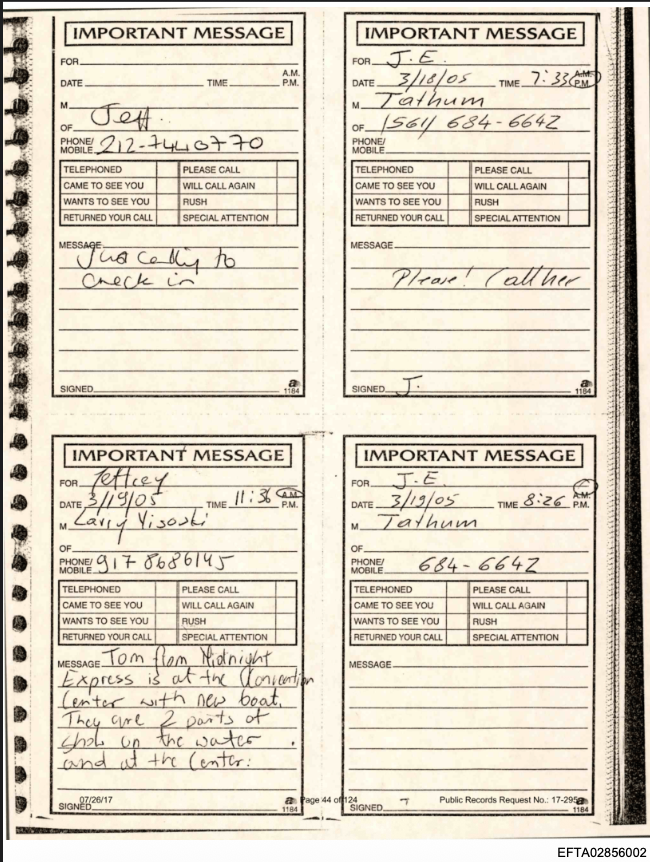 IMPORTANT MESSAGE
FOR
DATE TIME A.M. P.M.
M Jeff.
OF
PHONE/ MOBILE 212-7440770
TELEPHONED PLEASE CALL
CAME TO SEE YOU WILL CALL AGAIN
WANTS TO SEE YOU RUSH
RETURNED YOUR CALL SPECIAL ATTENTION
MESSAGE Just calling to
check in
SIGNED
a 1184
IMPORTANT MESSAGE
FOR J.E.
DATE 3/18/05 TIME 7:33 A.M. P.M.
M Tathum
OF (561) 684-6642
PHONE/ MOBILE
TELEPHONED PLEASE CALL
CAME TO SEE YOU WILL CALL AGAIN
WANTS TO SEE YOU RUSH
RETURNED YOUR CALL SPECIAL ATTENTION
MESSAGE
Please! Call her
SIGNED J.
a 1184
IMPORTANT MESSAGE
FOR Jeffrey
DATE 3/19/05 TIME 11:36 A.M. P.M.
M Larry Visoski
OF
PHONE/ MOBILE 917 8686145
TELEPHONED PLEASE CALL
CAME TO SEE YOU WILL CALL AGAIN
WANTS TO SEE YOU RUSH
RETURNED YOUR CALL SPECIAL ATTENTION
MESSAGE Tom from Midnight
Express is at the Convention
Center with new boat.
They are 2 parts of
show on the water.
and at the Center:
SIGNED
a 1184
IMPORTANT MESSAGE
FOR J.E.
DATE 3/19/05 TIME 8:26 A.M. P.M.
M Tathum
OF
PHONE/ MOBILE 684-6642
TELEPHONED PLEASE CALL
CAME TO SEE YOU WILL CALL AGAIN
WANTS TO SEE YOU RUSH
RETURNED YOUR CALL SPECIAL ATTENTION
MESSAGE
SIGNED
1184
07/26/17 Page 44 of 124 Public Records Request No.: 17-295
EFTA02856002